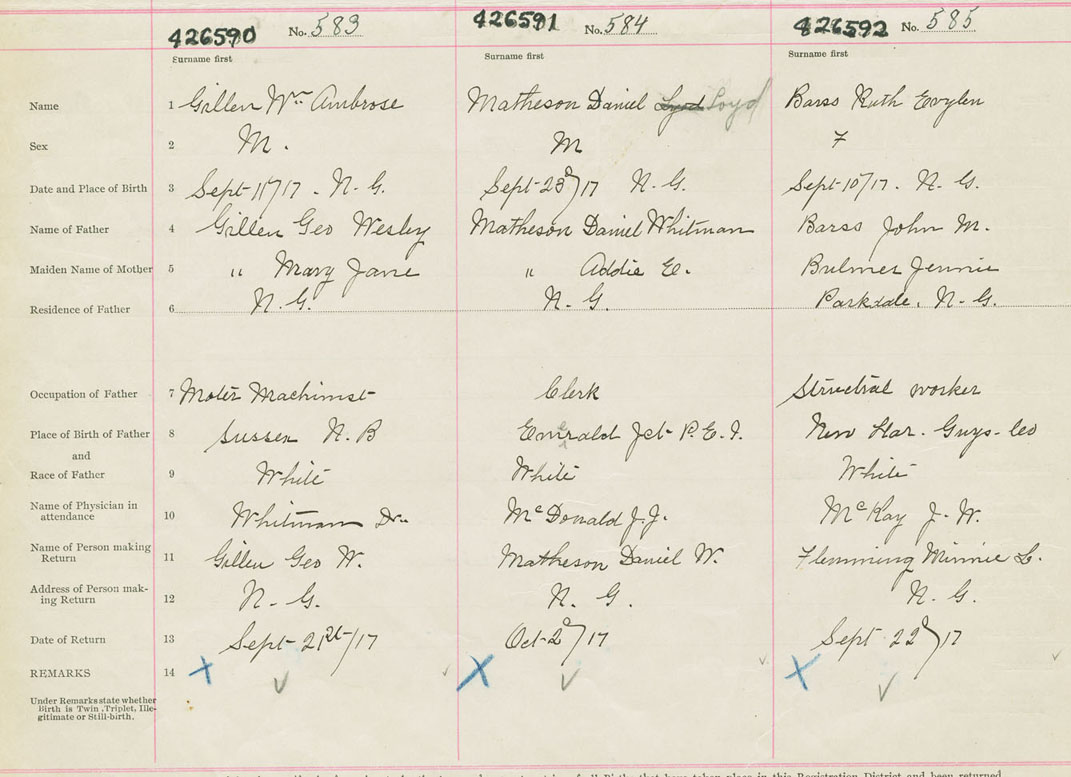 426590 No. 583 426591 No. 584 426592 No. 585
Surname first Surname first Surname first
Name 1 Gillen Wm Ambrose Matheson Daniel Loyd Barss Ruth Evylen
Sex 2 M. M F
Date and Place of Birth 3 Sept 11/17. N. G. Sept 23d/17 N. G. Sept 10/17. N. G.
Name of Father 4 Gillen Geo Wesley Matheson Daniel Whitman Barss John M.
Maiden Name of Mother 5 " Mary Jane " Addie E. Bulmer Jennie
Residence of Father 6 N. G. N. G. Parkdale, N. G.
Occupation of Father 7 Moter Machinist Clerk Structral worker
Place of Birth of Father 8 Sussex N. B Emerald Jct P. E. I. New Har. Guys. Co
and
Race of Father 9 White White White
Name of Physician in
attendance 10 Whitman Dr. McDonald J. J. McKay J. W.
Name of Person making
Return 11 Gillen Geo W. Matheson Daniel W. Flemming Minnie L.
Address of Person mak-
ing Return 12 N. G. N. G. N. G.
Date of Return 13 Sept 21st/17 Oct 2d/17 Sept 22d/17
REMARKS 14
Under Remarks state whether
Birth is Twin, Triplet, Ille-
gitimate or Still-birth.